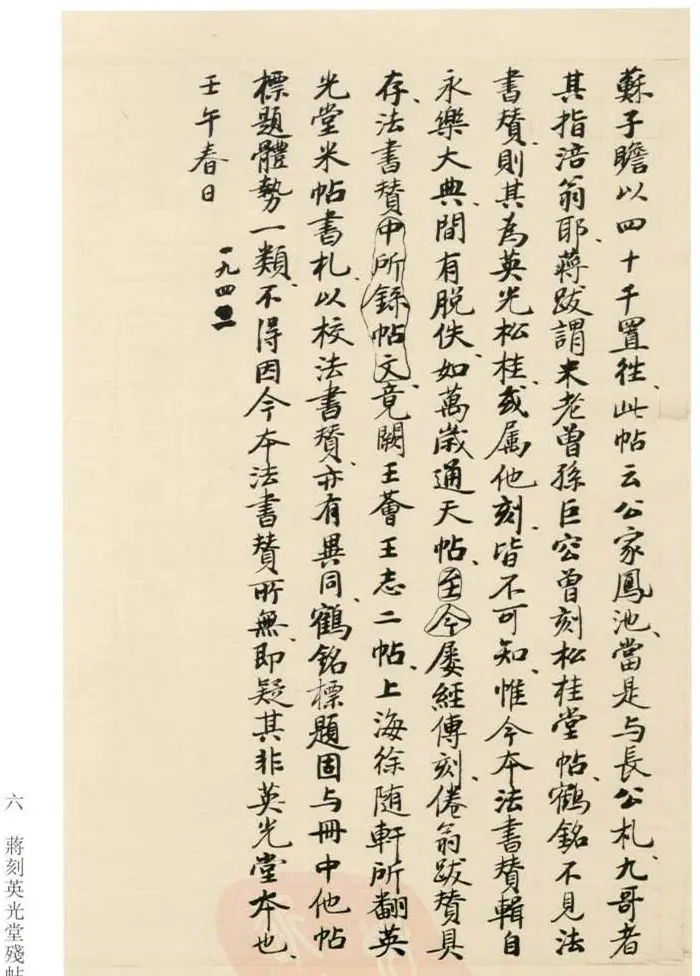 蘇子瞻以四十千置往、此帖云公家鳳池、當是与長公札、九哥者
其指涪翁耶、蔣跋謂米老曾孫巨容曾刻松桂堂帖、鶴銘不見法
書贊、則其為英光松桂、或属他刻、皆不可知、惟今本法書贊輯自
永樂大典、間有脫佚、如萬歲通天帖、至今屡經傳刻、倦翁跋贊具
存、法書贊中所録帖文、竟闕王薈王志二帖、上海徐随軒所翻英
光堂米帖書札、以校法書贊、亦有異同、鶴銘標題固与冊中他帖
標題體勢一類、不得因今本法書贊所無、即疑其非英光堂本也、
壬午春日
一九四二
六 蔣刻英光堂殘帖